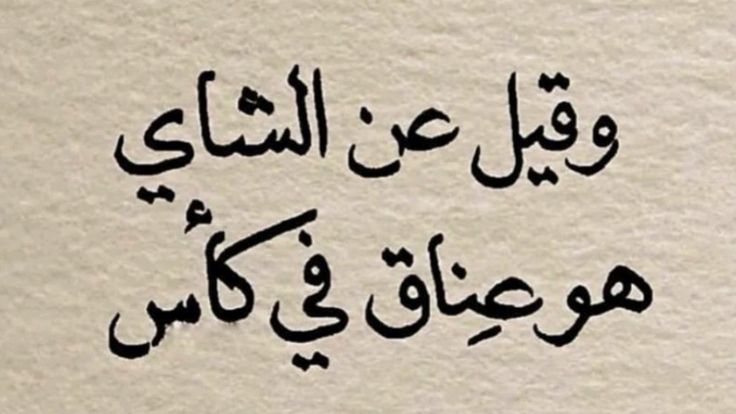 وقيل عن الشاي
هو عِناق في كأس